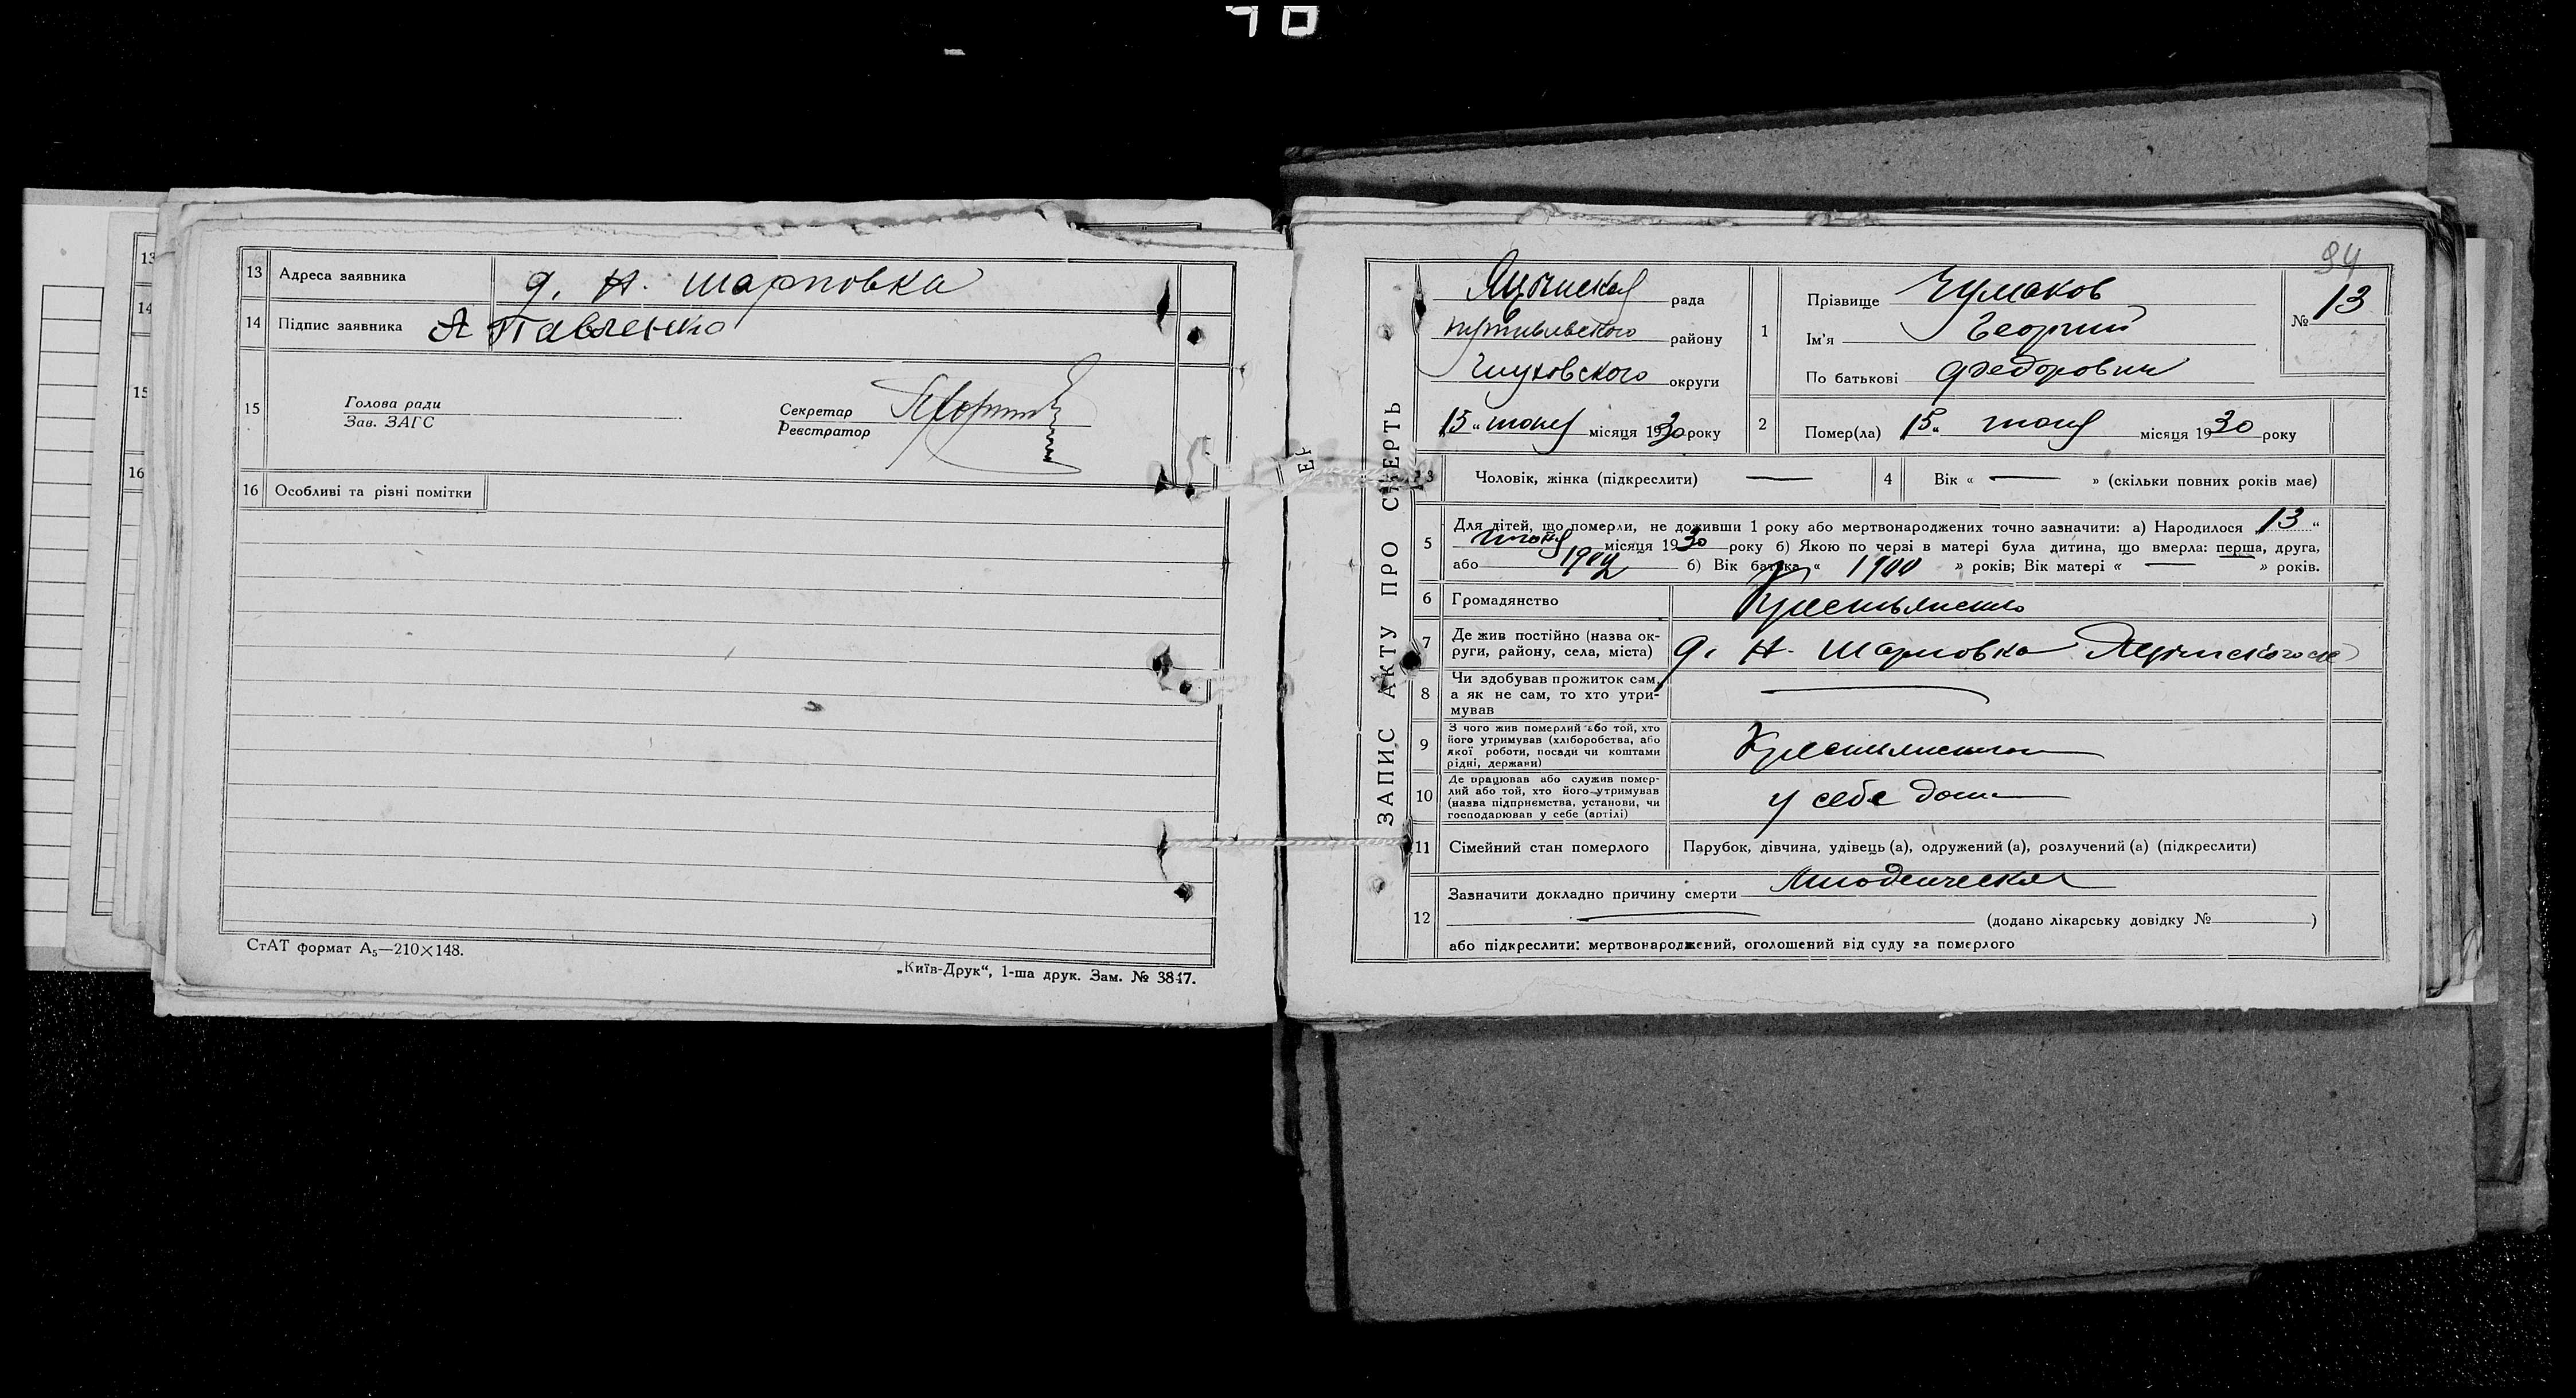 13 Адреса заявника д. Н. Шарповка
14 Підпис заявника А Павленко
15 Голова ради
Зав. ЗАГС
Секретар
Реєстратор
16 Особливі та різні помітки
СтАТ формат А₅—210×148.
„Київ-Друк“, 1-ша друк. Зам. № 3847.
94
ЗАПИС АКТУ ПРО СМЕРТЬ
рада
Путивльского району
Глуховского округи
15 „ июня місяця 1930 року
1 Прізвище Чумаков
Ім'я Георгий
По батькові Федорович
№ 13
2 Помер(ла) 15 „ июня місяця 1930 року
3 Чоловік, жінка (підкреслити) —
4 Вік « — » (скільки повних років має)
5 Для дітей, що померли, не доживши 1 року або мертвонароджених точно зазначити: а) Народилося 13 “
июня місяця 1930 року б) Якою по черзі в матері була дитина, що вмерла: перша, друга,
або 1902 б) Вік батька « 1900 » років; Вік матері « — » років.
6 Громадянство
7 Де жив постійно (назва ок-
руги, району, села, міста) д. Н. Шарповка
8 Чи здобував прожиток сам,
а як не сам, то хто утри-
мував —
9 З чого жив померлий або той, хто
його утримував (хліборобства, або
якої роботи, посади чи коштами
рідні, держави)
10 Де працював або служив помер-
лий або той, хто його утримував
(назва підприємства, установи, чи
господарював у себе (артілі)
у себе дома
11 Сімейний стан померлого Парубок, дівчина, удівець (а), одружений (а), розлучений (а) (підкреслити)
12 Зазначити докладно причину смерти Младенческая
— (додано лікарську довідку № )
або підкреслити: мертвонароджений, оголошений від суду за померлого